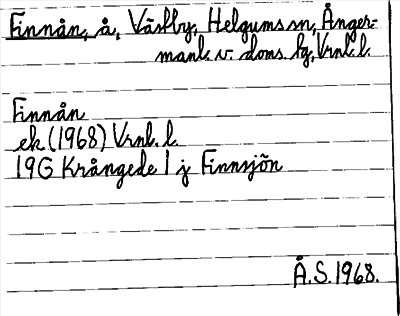 Finnån, å, Västby, Helgums sn, Ånger-
manl. v. doms. bg, Vrnl. l.
Finnån
ek (1968) Vrnl. l.
19G Krångede 1 j Finnsjön
Å.S. 1968.